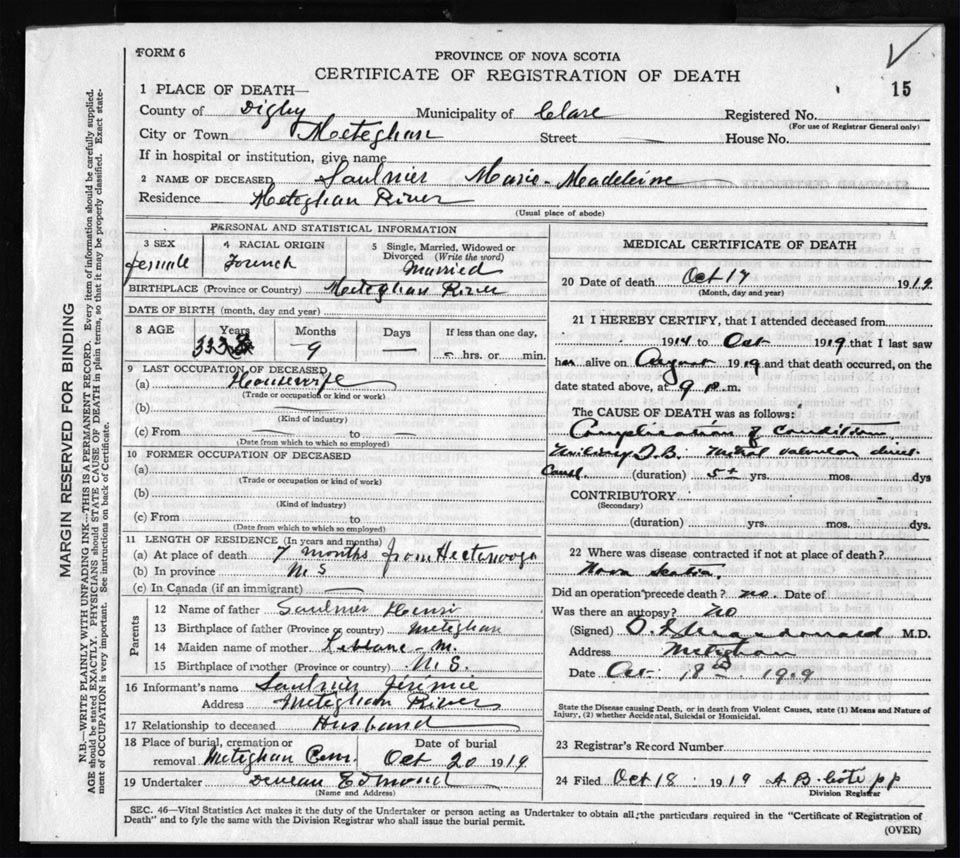 FORM 6
PROVINCE OF NOVA SCOTIA
CERTIFICATE OF REGISTRATION OF DEATH
15
1 PLACE OF DEATH—
County of Digby Municipality of Clare Registered No.
(For use of Registrar General only)
City or Town Meteghan Street House No.
If in hospital or institution, give name
2 NAME OF DECEASED Saulnier Marie-Madeleine
Residence Meteghan River
(Usual place of abode)
PERSONAL AND STATISTICAL INFORMATION
3 SEX female
4 RACIAL ORIGIN French
5 Single, Married, Widowed or Divorced (Write the word) Married
BIRTHPLACE (Province or Country) Meteghan River
DATE OF BIRTH (month, day and year)
8 AGE Years 33 Months 9 Days — If less than one day, hrs. or min.
9 LAST OCCUPATION OF DECEASED
(a) Housewife
(Trade or occupation or kind or work)
(b)
(Kind of industry)
(c) From to
(Date from which to which so employed)
10 FORMER OCCUPATION OF DECEASED
(a)
(Trade or occupation or kind of work)
(b)
(Kind of industry)
(c) From to
(Date from which to which so employed)
11 LENGTH OF RESIDENCE (In years and months)
(a) At place of death 7 months from Hectanooga
(b) In province N S
(c) In Canada (if an immigrant)
Parents
12 Name of father Saulnier Henri
13 Birthplace of father (Province or country) Meteghan
14 Maiden name of mother Leblanc - M.
15 Birthplace of mother (Province or country) N. S.
16 Informant's name Saulnier Jérimie
Address Meteghan River
17 Relationship to deceased Husband
18 Place of burial, cremation or removal Meteghan Cem. Date of burial Oct 20 1919
19 Undertaker Deveau Edmond
(Name and Address)
MEDICAL CERTIFICATE OF DEATH
20 Date of death Oct 17 1919
(Month, day and year)
21 I HEREBY CERTIFY, that I attended deceased from
1914 to Oct 1919 that I last saw
her alive on August 1919 and that death occurred, on the
date stated above, at 9 p.m.
The CAUSE OF DEATH was as follows:
Complication of Conditions
T.B. Mitral valvular direct
Cause. (duration) 5+ yrs. mos. dys
CONTRIBUTORY
(Secondary)
(duration) yrs. mos. dys.
22 Where was disease contracted if not at place of death?
Nova Scotia.
Did an operation precede death? no. Date of
Was there an autopsy? no
(Signed) M.D.
Address Meteghan
Date Oct 18th 1919
State the Disease causing Death, or in death from Violent Causes, state (1) Means and Nature of
Injury, (2) whether Accidental, Suicidal or Homicidal.
23 Registrar's Record Number
24 Filed Oct 18 1919 A B Côté pp
Division Registrar
SEC. 46—Vital Statistics Act makes it the duty of the Undertaker or person acting as Undertaker to obtain all the particulars required in the "Certificate of Registration of
Death" and to fyle the same with the Division Registrar who shall issue the burial permit.
(OVER)
MARGIN RESERVED FOR BINDING
N.B.—WRITE PLAINLY WITH UNFADING INK—THIS IS A PERMANENT RECORD. Every item of information should be carefully supplied.
AGE should be stated EXACTLY. PHYSICIANS should STATE CAUSE OF DEATH in plain terms, so that it may be properly classified. Exact state-
ment of OCCUPATION is very important. See instructions on back of Certificate.